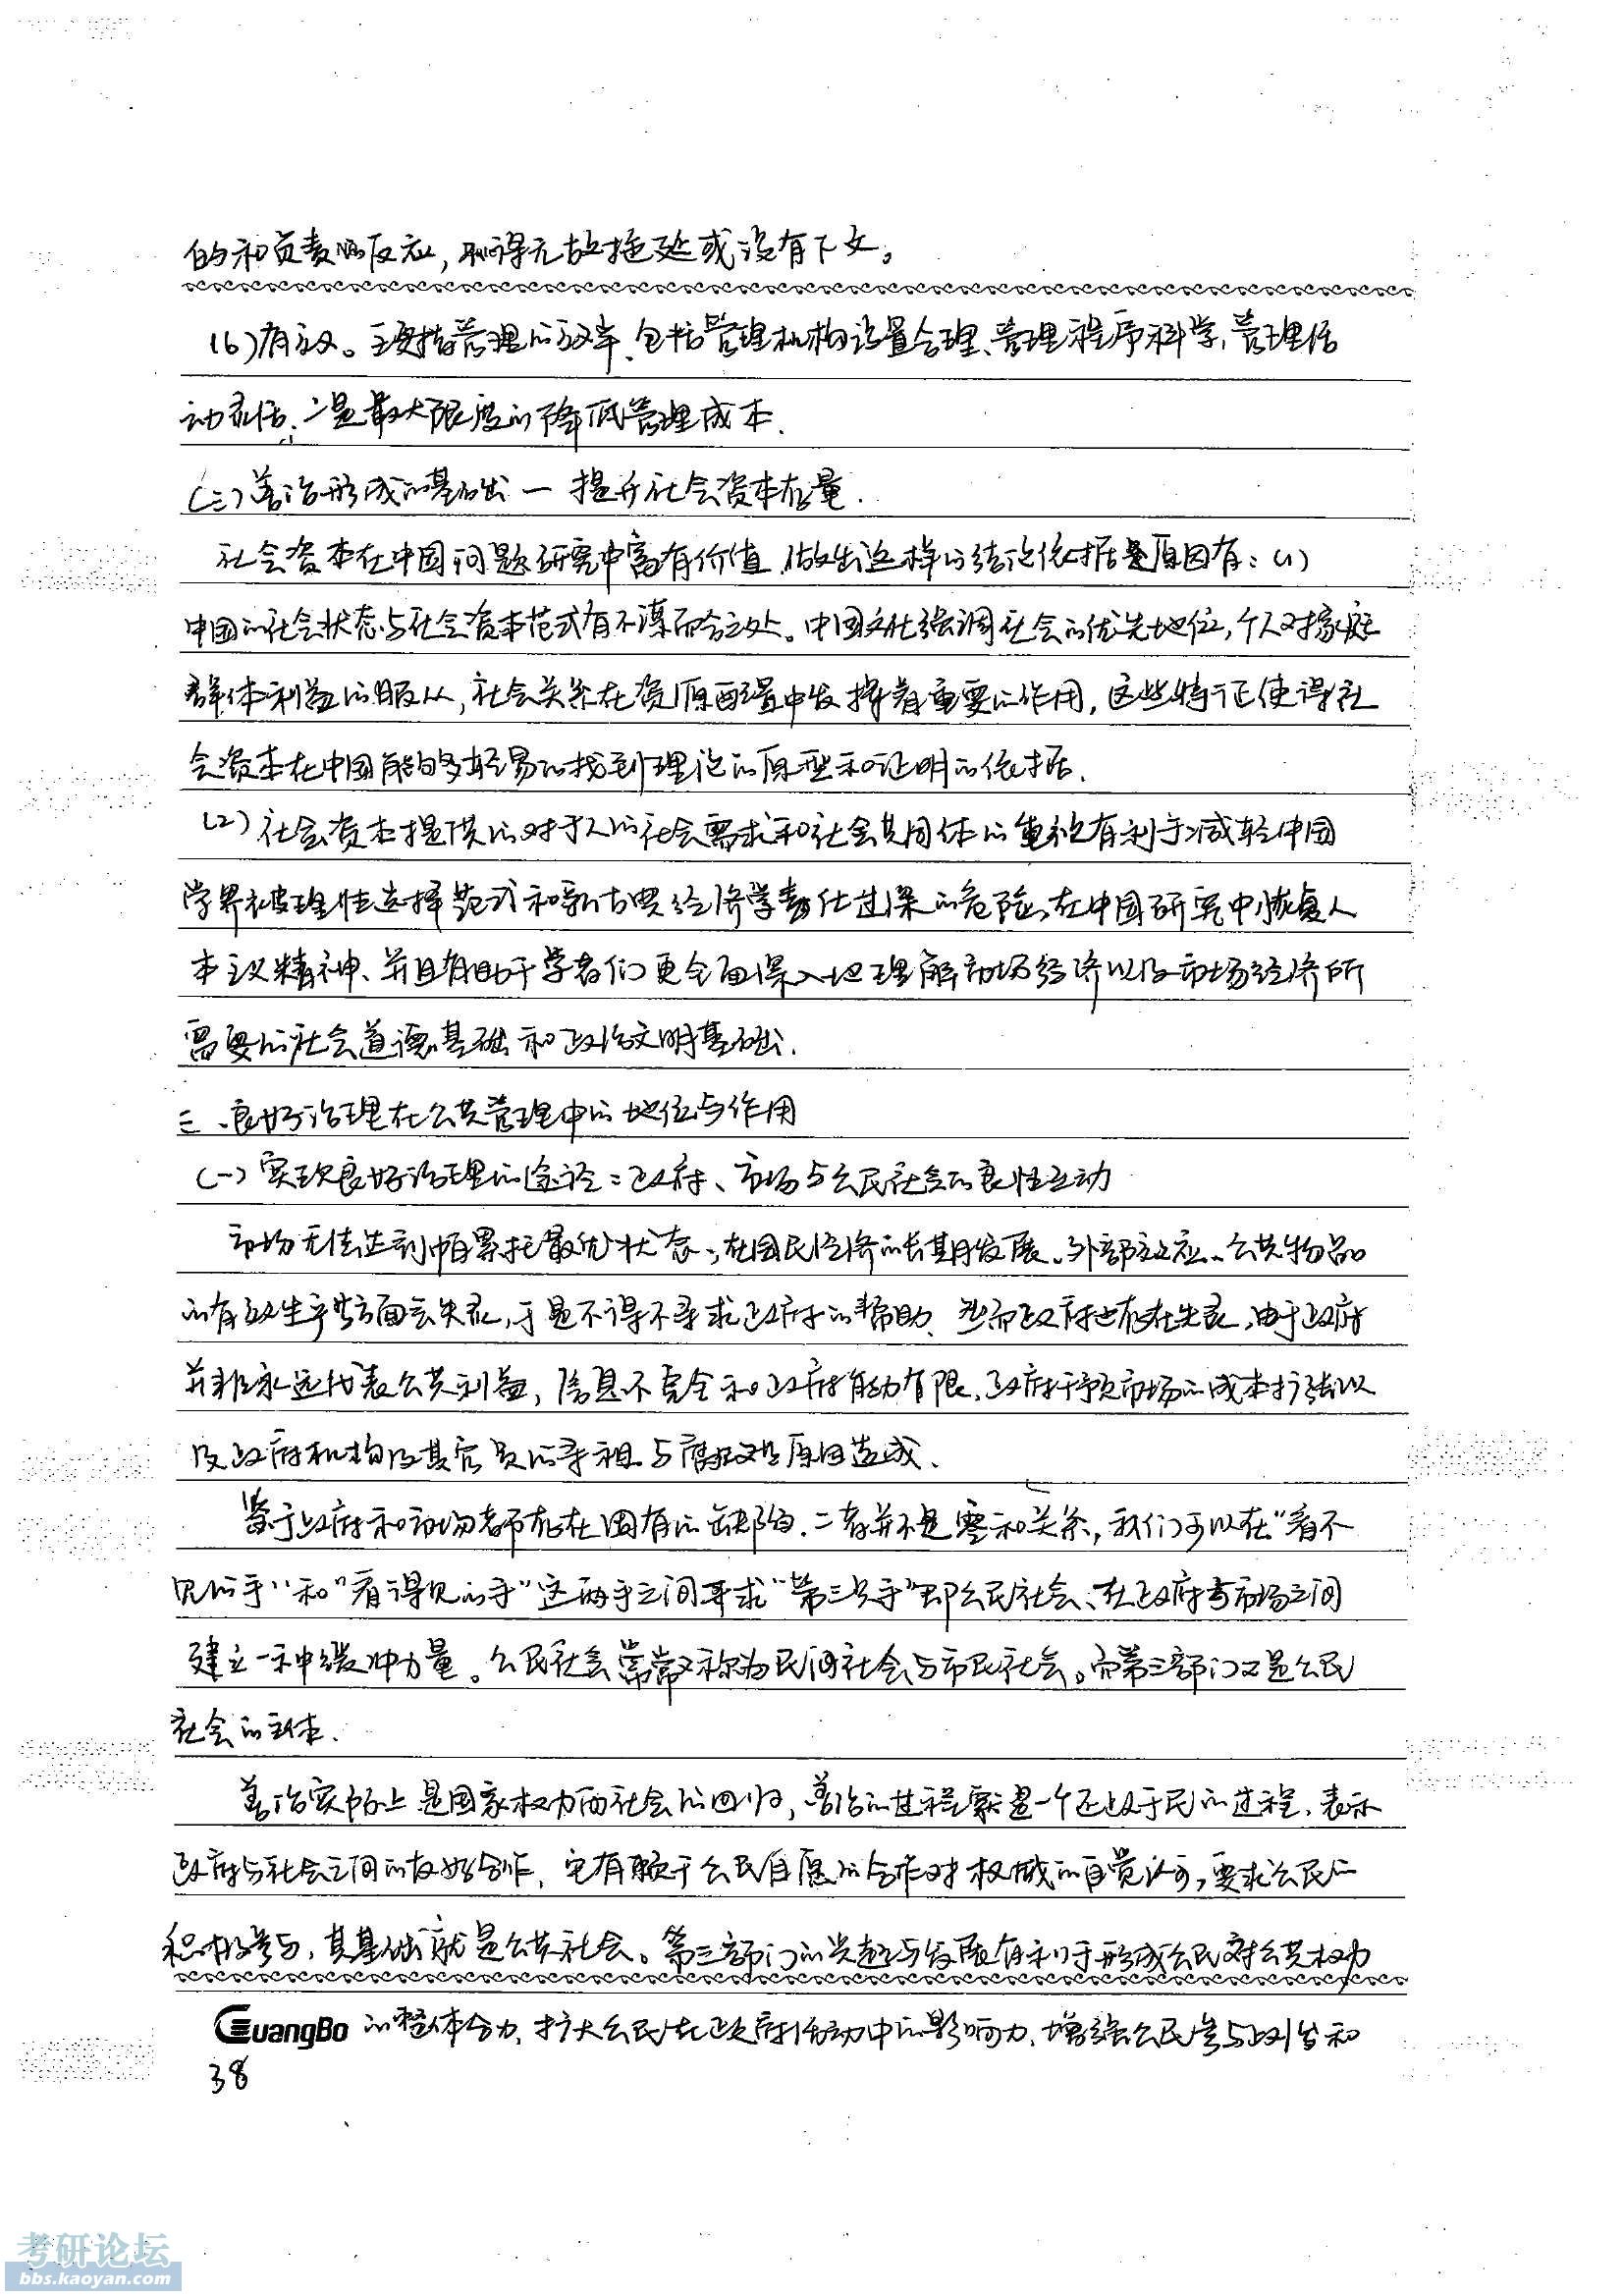 的和负责的反应,不得无故拖延或没有下文。
(6)有效。主要指管理的效率,包括管理机构设置合理、管理程序科学,管理活
动灵活;二是最大限度的降低管理成本.
(三)善治形成的基础 — 提升社会资本存量.
社会资本在中国问题研究中富有价值.做出这样的结论依据是原因有:(1)
中国的社会状态与社会资本范式有不谋而合之处。中国文化强调社会的优先地位,个人对家庭
群体利益的服从,社会关系在资源配置中发挥着重要的作用,这些特征使得社
会资本在中国能够轻易的找到理论的原型和证明的依据.
(2)社会资本提供的对于人的社会需求和社会共同体的重视有利于减轻中国
学界被理性选择范式和新古典经济学责任过深的危险,在中国研究中恢复人
本主义精神、并且有助于学者们更全面深入地理解市场经济以及市场经济所
需要的社会道德基础和政治文明基础.
三.良好治理在公共管理中的地位与作用
(一)实现良好治理的途径:政府、市场与公民社会的良性互动
市场无法达到帕累托最优状态;在国民经济的长期发展、外部效应、公共物品
的有效生产等方面会失灵,于是不得不寻求政府的帮助.然而政府也存在失灵,由于政府
并非永远代表公共利益,信息不完全和政府能力有限.政府干预市场的成本扩张以
及政府机构及其官员的寻租与腐败等原因造成.
鉴于政府和市场者都存在固有的缺陷.二者并不是零和关系,我们可以在"看不
见的手"和"看得见的手"这两手之间寻求"第三只手"即公民社会、在政府与市场之间
建立一种缓冲力量。公民社会常常又称为民间社会与市民社会。而第三部门又是公民
社会的主体.
善治实际上是国家权力向社会的回归,善治的过程就是一个还政于民的过程.表示
政府与社会之间的友好合作.它有赖于公民自愿的合作对权威的自觉认可,要求公民的
积极参与,其基础就是公共社会。第三部门的兴起与发展有利于形成公民对公共权力
GuangBo 的整体合力,扩大公民在政府活动中的影响力.增强公民参与政治和
38
考研论坛
bbs.kaoyan.com